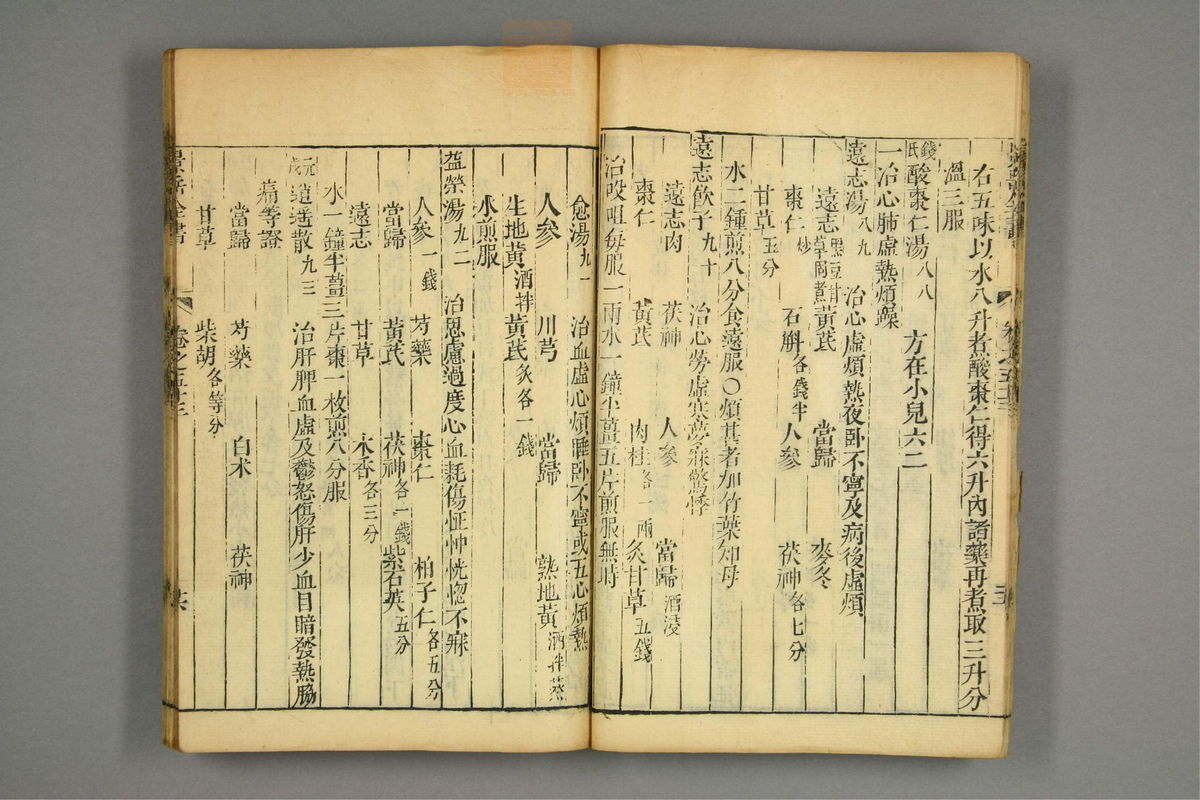 右五味以水八升煮酸棗仁得六升內諸藥再煮取三升分
溫三服
錢氏酸棗仁湯八八 方在小兒六二
一治心肺虛熱煩躁
遠志湯八九 治心虛煩熱夜卧不寧及病後虛煩
遠志黑豆甘草同煮 黃芪 當歸 麥冬
棗仁炒 石斛各錢半 人參 茯神各七分
甘草五分
水二鍾煎八分食遠服○煩甚者加竹葉知母
遠志飲子九十 治心勞虛寒夢寐驚悸
遠志肉 茯神 人參 當歸酒浸
棗仁 黃芪 肉桂各一兩 炙甘草五錢
右㕮咀每服一兩水一鐘半薑五片煎服無時
愈湯九一 治血虛心煩睡卧不寧或五心煩熱
人參 川芎 當歸 熟地黃酒拌蒸
生地黃酒拌 黃芪炙各一錢
水煎服
益榮湯九二 治思慮過度心血耗傷怔忡恍惚不寐
人參一錢 芍藥 棗仁 柏子仁各五分
當歸 黃芪 茯神各一錢 紫石英五分
遠志 甘草 木香各三分
水一鐘半薑三片棗一枚煎八分服
元戎逍遙散九三 治肝脾血虛及鬱怒傷肝少血目暗發熱脇
痛等證
當歸 芍藥 白术 茯神
甘草 柴胡各等分
景岳全書 卷之五十三